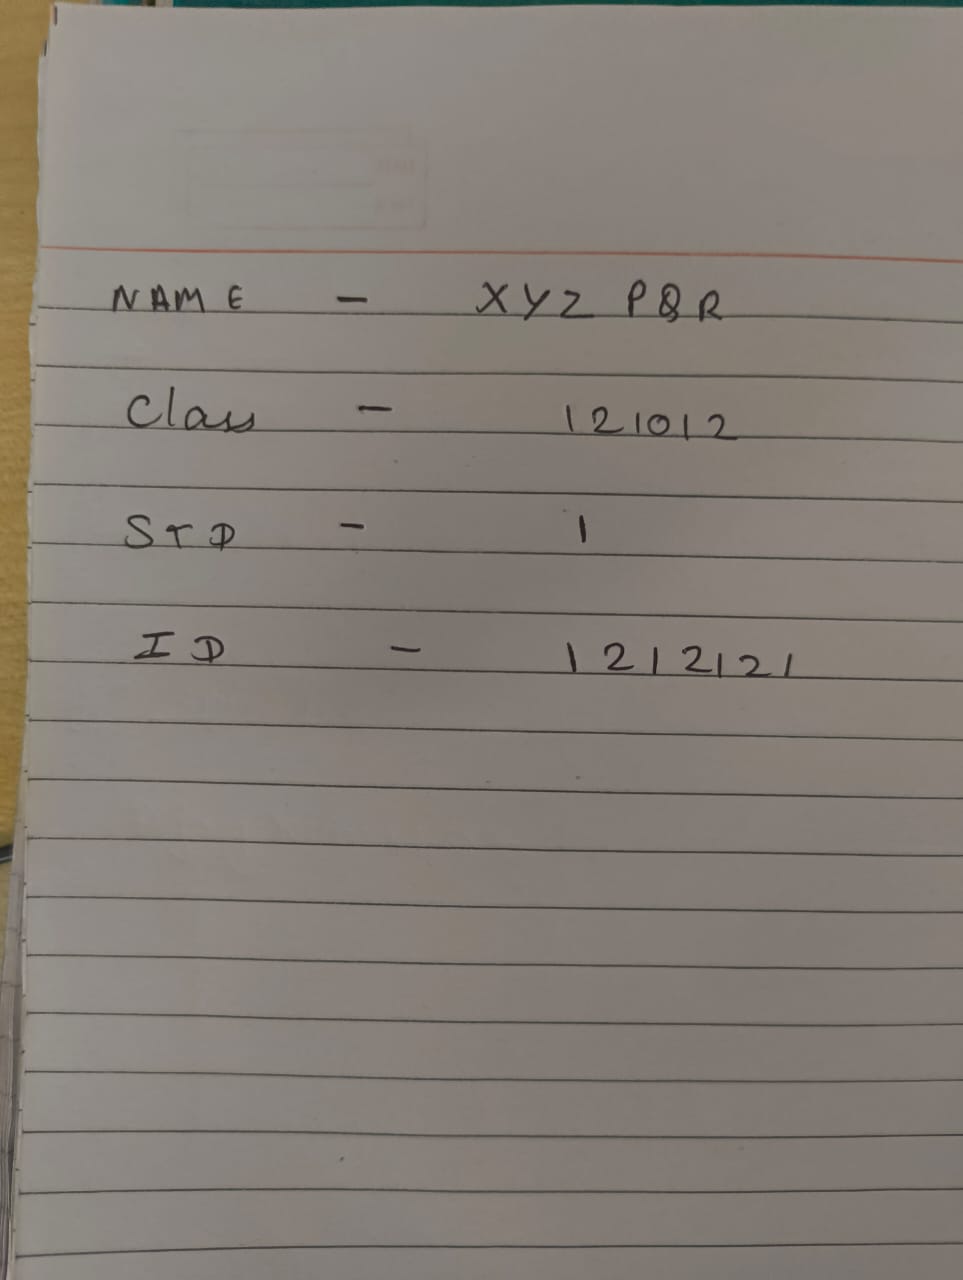 NAME - XYZ PQR
Class - 121012
STD - 1
ID - 1212121